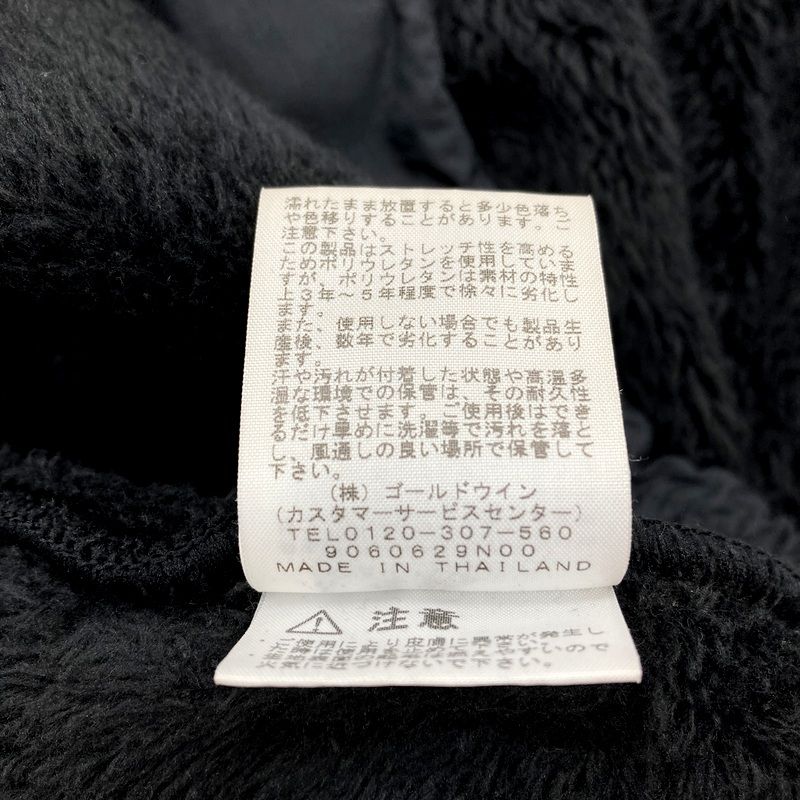 濡れたまま放置すると多少色落ち
や色移りすることがあります。ご
注意下さい。
この製品はストレッチ性を高める
ためポリウレタンを使用していま
すが、ポリウレタンは素材の特性
上3年～5年程度で徐々に劣化し
ます。
また、使用しない場合でも製品生
産後、数年で劣化することがあり
ます。
汗や汚れが付着した状態や高温多
湿な環境での保管は、その耐久性
を低下させます。ご使用後はでき
るだけ早めに洗濯等で汚れを落と
し、風通しの良い場所で保管して
下さい。
(株) ゴールドウイン
(カスタマーサービスセンター)
TEL0120-307-560
9060629N00
MADE IN THAILAND
⚠ 注意
ご使用により皮膚に異常が発生し
火気に近づけないで下さい。